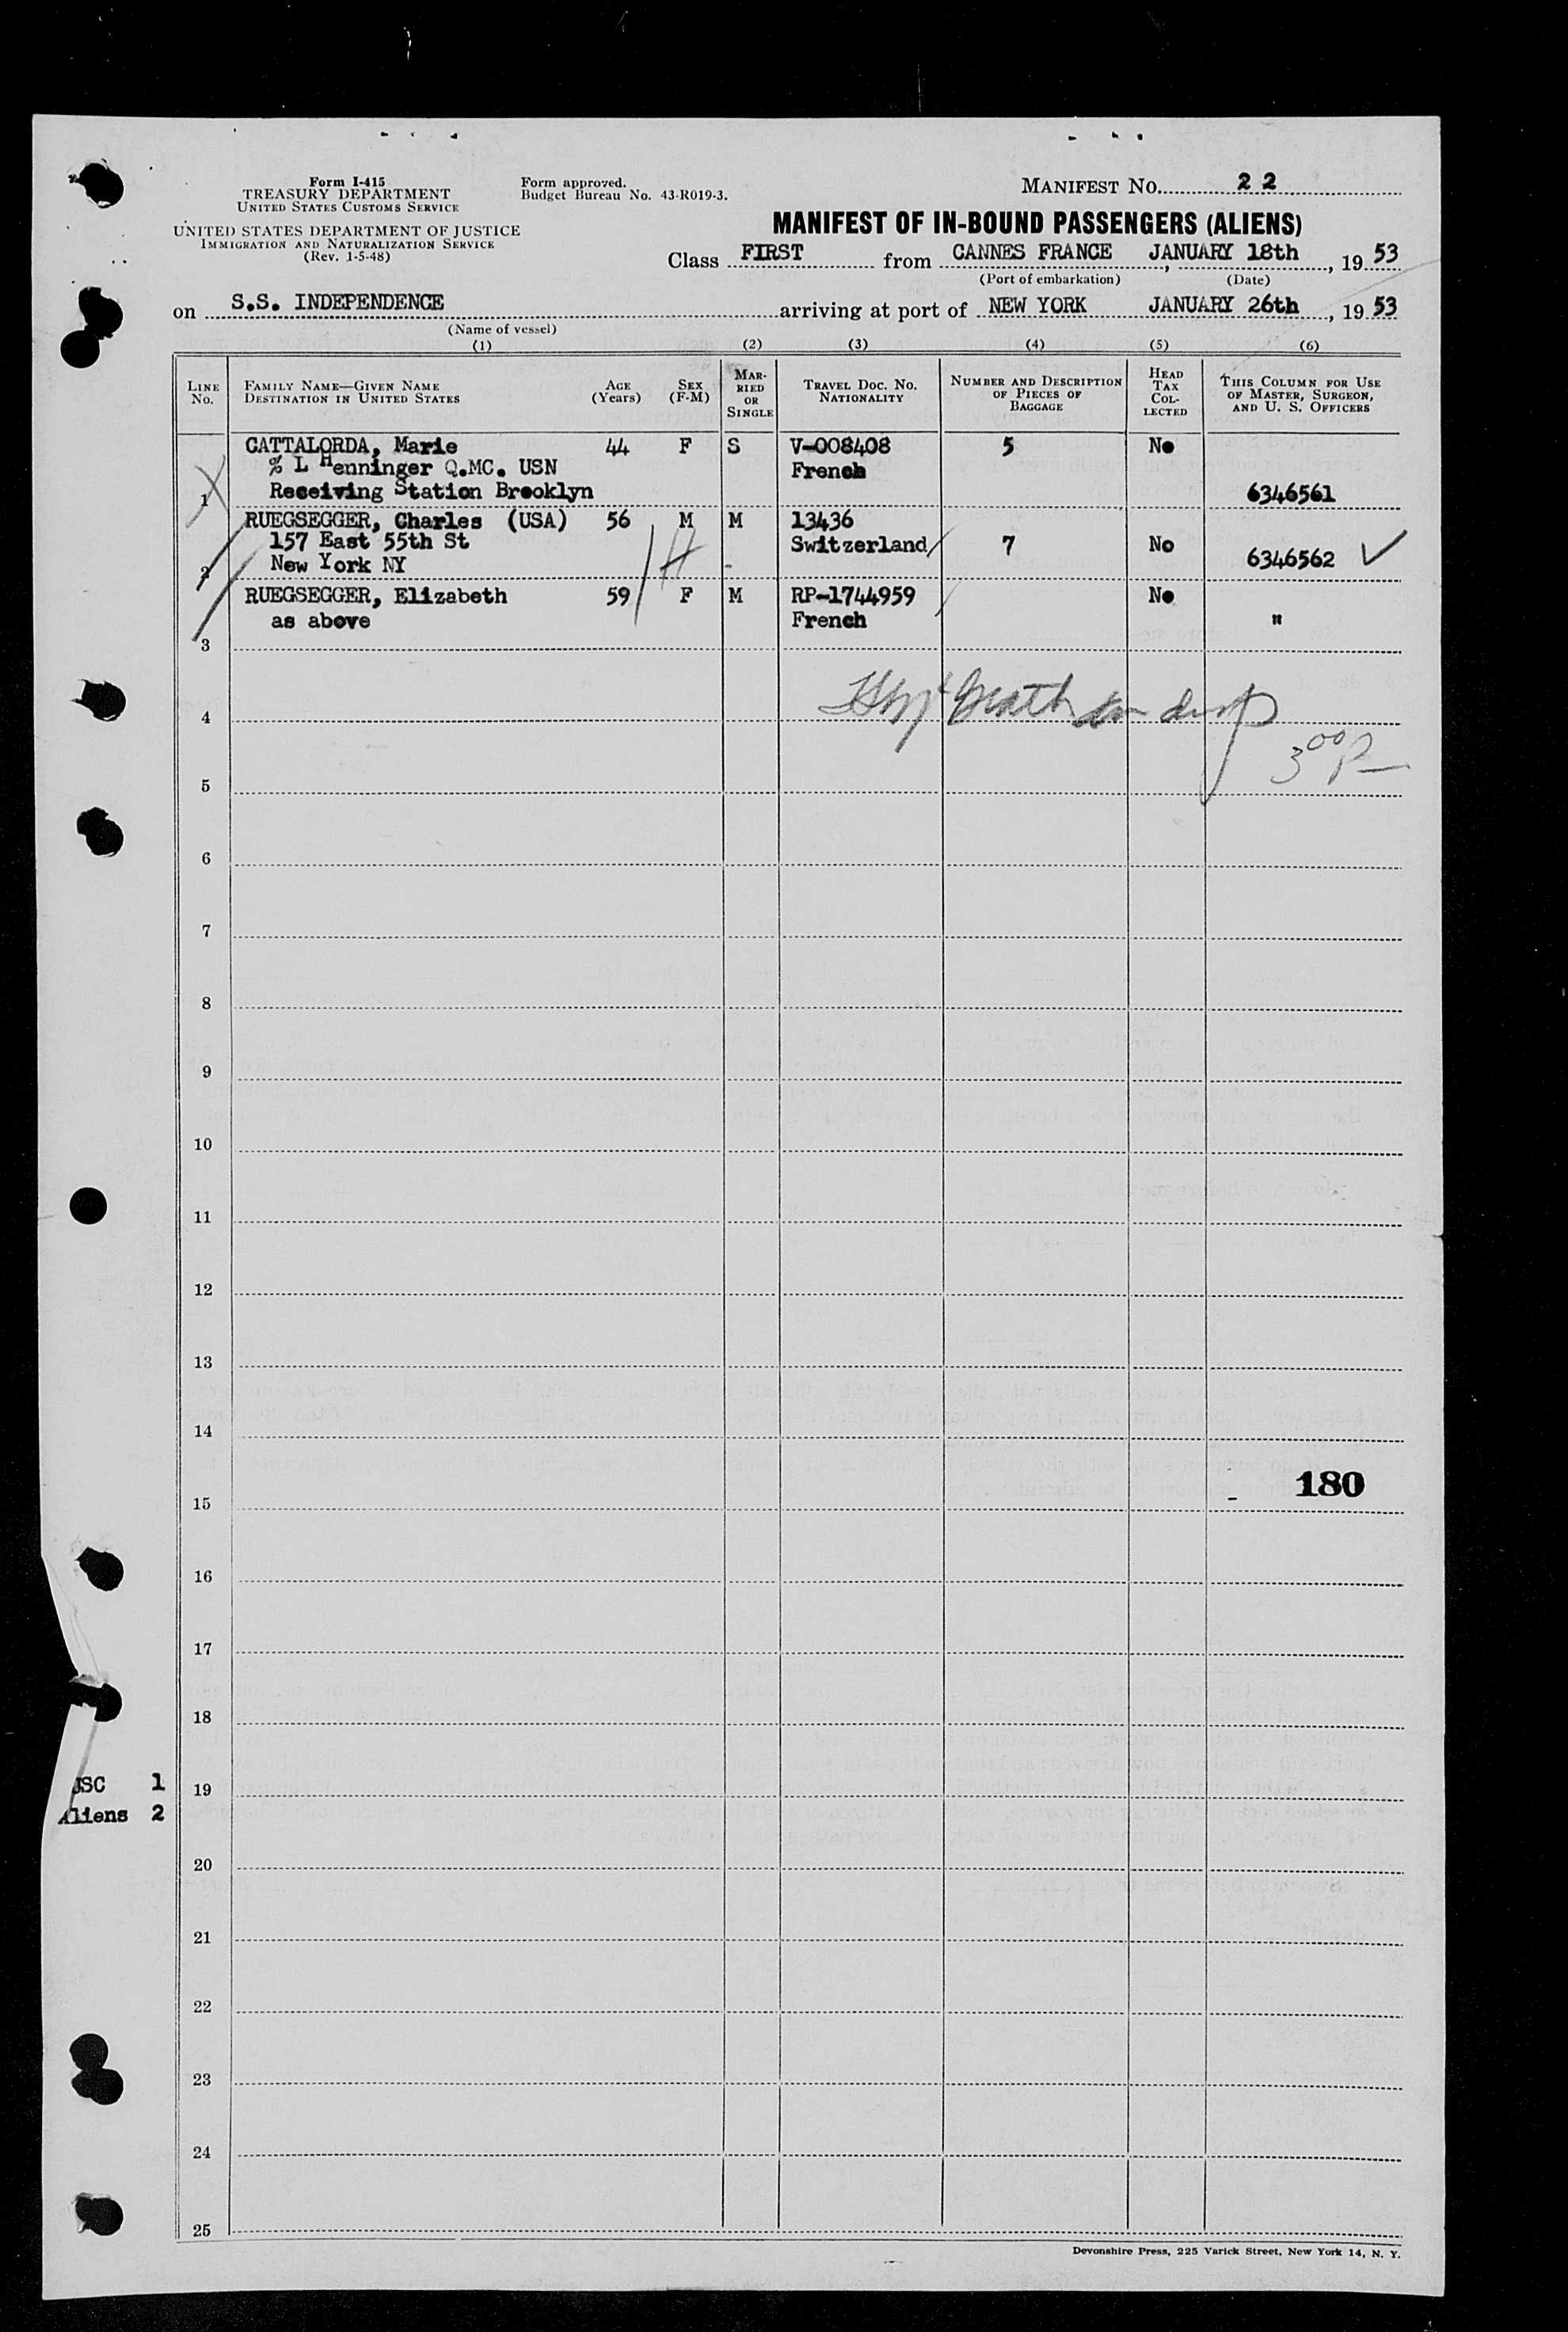 Form I-415
TREASURY DEPARTMENT
UNITED STATES CUSTOMS SERVICE
UNITED STATES DEPARTMENT OF JUSTICE
IMMIGRATION AND NATURALIZATION SERVICE
(Rev. 1-5-48)
Form approved.
Budget Bureau No. 43-R019-3.
MANIFEST NO. 22
MANIFEST OF IN-BOUND PASSENGERS (ALIENS)
Class FIRST from CANNES FRANCE, JANUARY 18th, 19 53
(Port of embarkation) (Date)
on S.S. INDEPENDENCE arriving at port of NEW YORK JANUARY 26th, 19 53
(Name of vessel)
(1) (2) (3) (4) (5) (6)
LINE No. FAMILY NAME—GIVEN NAME DESTINATION IN UNITED STATES AGE (Years) SEX (F-M) MARRIED OR SINGLE TRAVEL DOC. NO. NATIONALITY NUMBER AND DESCRIPTION OF PIECES OF BAGGAGE HEAD TAX COLLECTED THIS COLUMN FOR USE OF MASTER, SURGEON, AND U. S. OFFICERS
CATTALORDA, Marie 44 F S V-008408 5 No
% L Henninger Q.MC. USN French
1 Receiving Station Brooklyn 6346561
RUEGSEGGER, Charles (USA) 56 M M 13436
157 East 55th St Switzerland 7 No
2 New York NY 6346562
RUEGSEGGER, Elizabeth 59 F M RP-1744959 No
as above French "
3
4
3 00 P
5
6
7
8
9
10
11
12
13
14
180
15
16
17
18
USC 1
19
Aliens 2
20
21
22
23
24
25
Devonshire Press, 225 Varick Street, New York 14, N. Y.